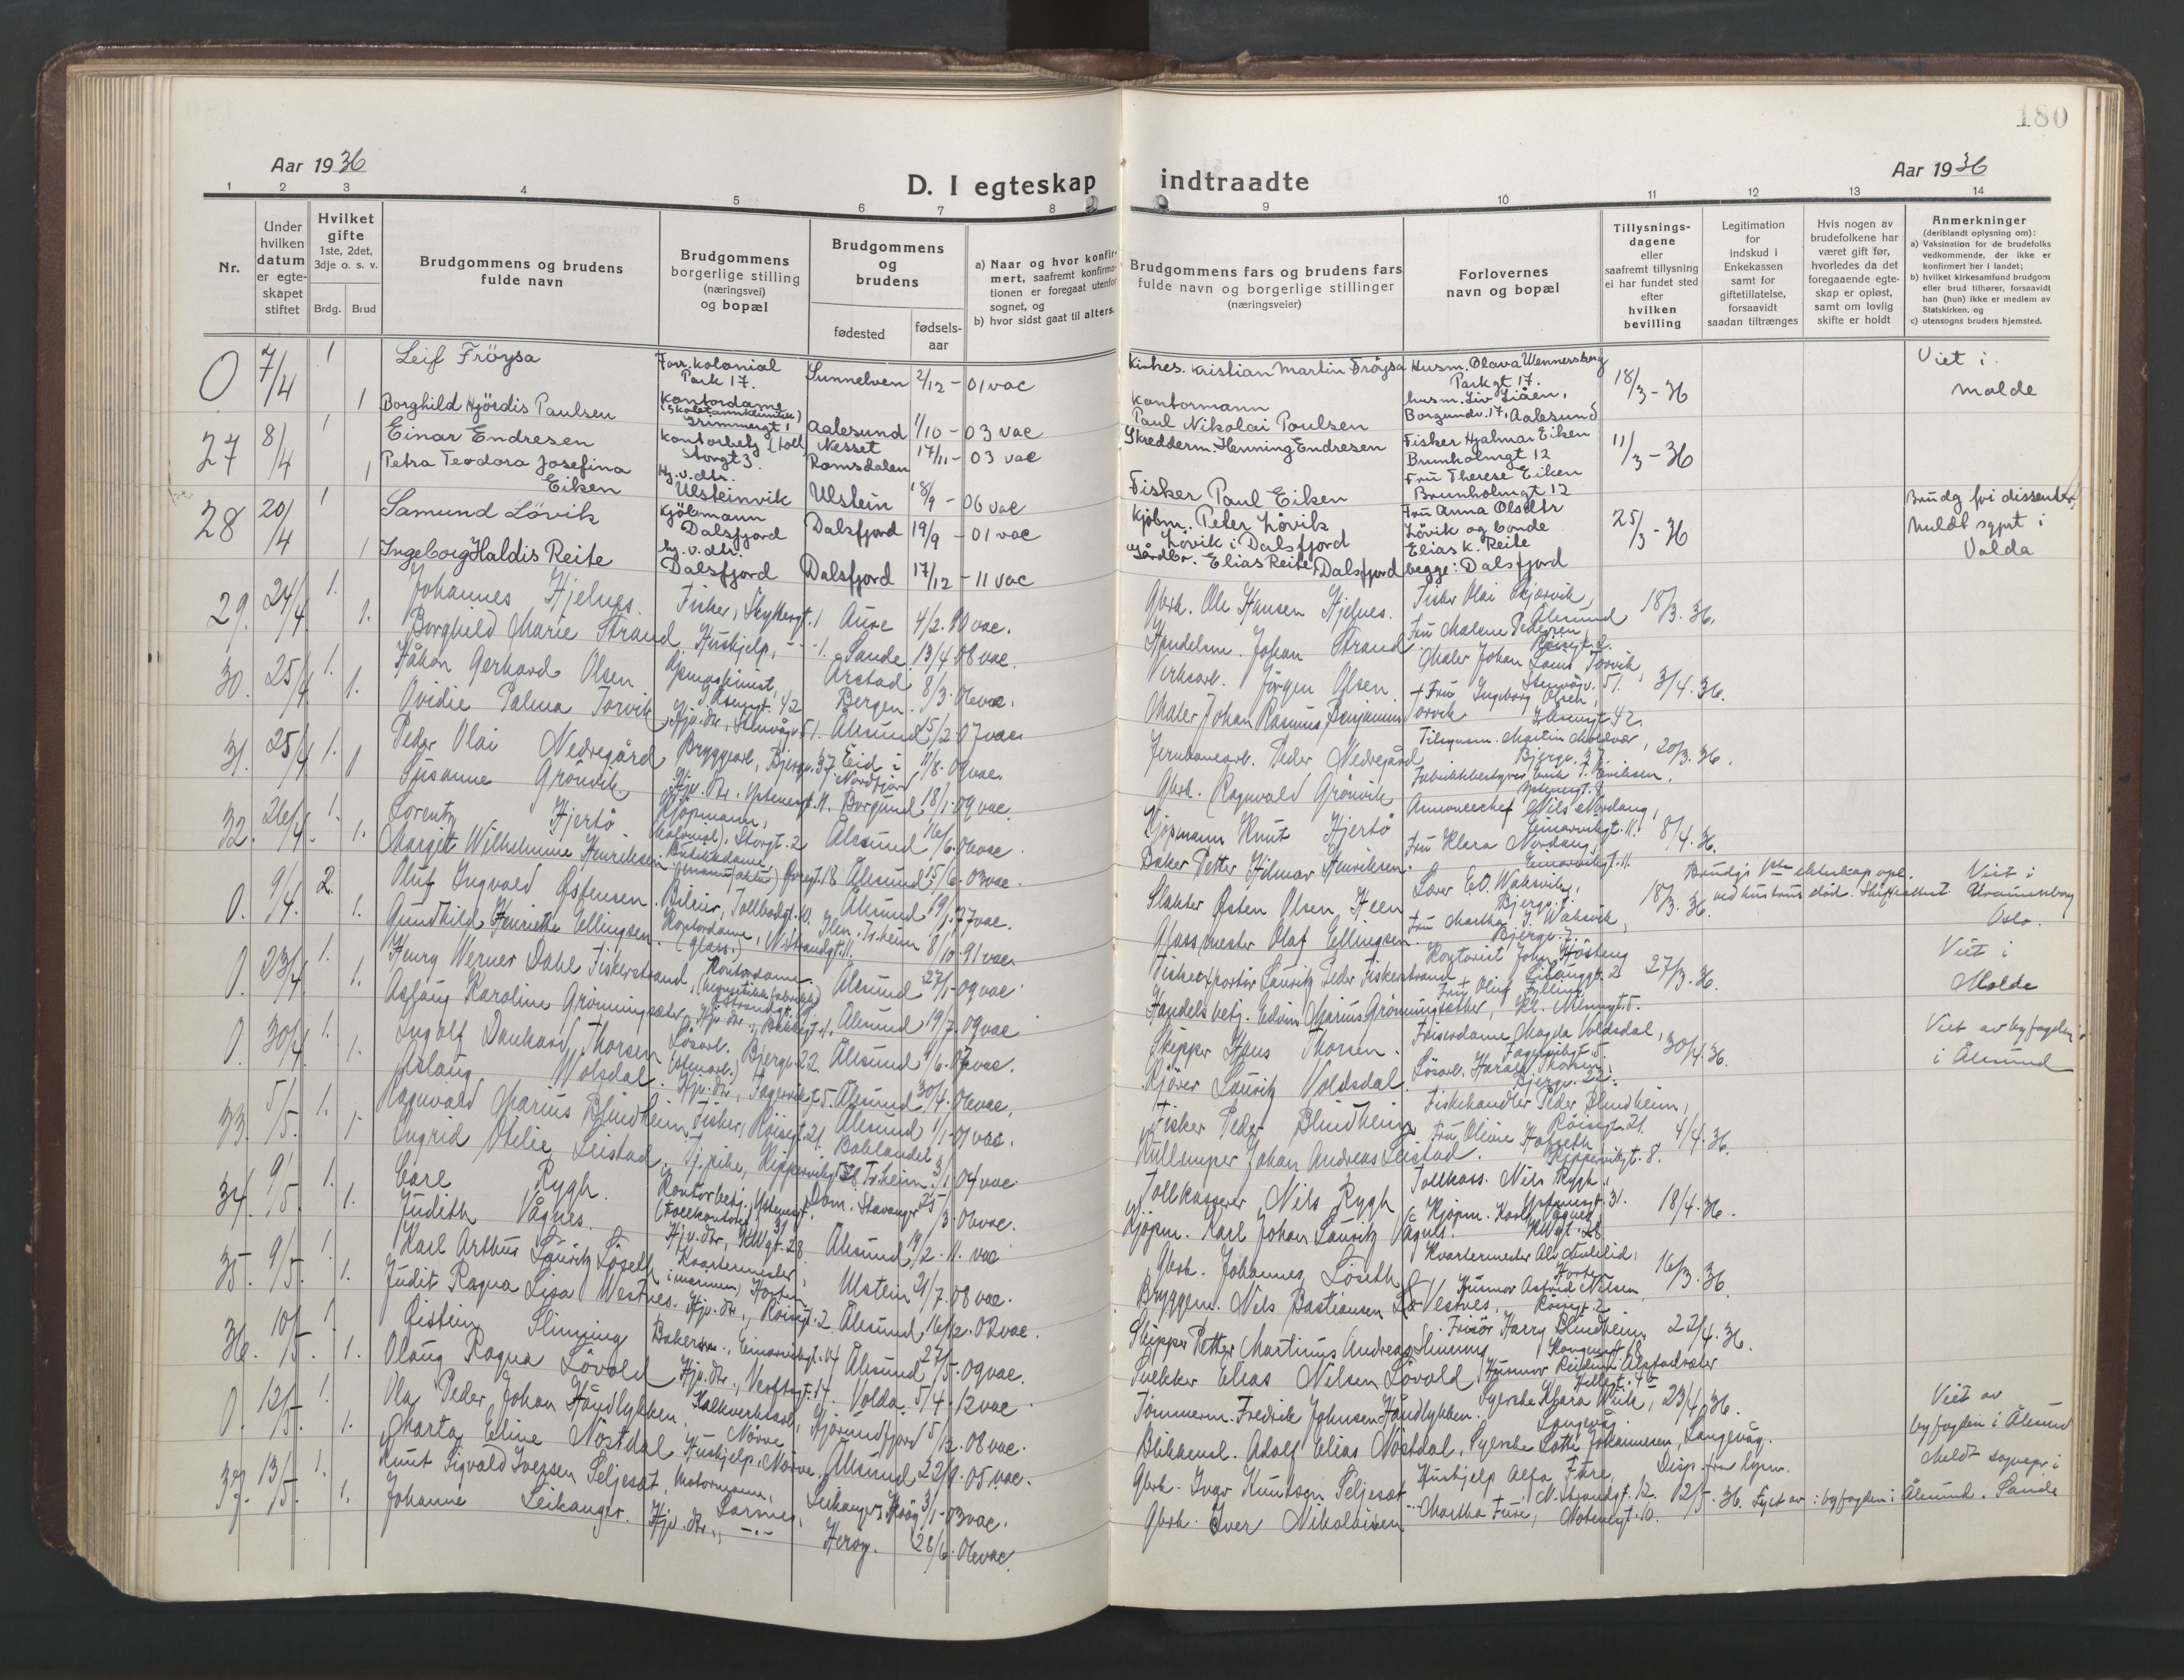 180
Aar 1936
Aar 1936
D. I egteskap indtraadte
1 2 3 4 5 6 7 8 9 10 11 12 13 14
Nr.
Under hvilken datum er egte-skapet stiftet
Hvilket gifte
1ste, 2det, 3dje o. s. v.
Brdg. Brud
Brudgommens og brudens
fulde navn
Brudgommens
borgerlige stilling
(næringsvei)
og bopæl
Brudgommens
og
brudens
fødested
fødsels-
aar
a) Naar og hvor konfir-
mert, saafremt konfirma-
tionen er foregaat utenfor
sognet, og
b) hvor sidst gaat til alters.
Brudgommens fars og brudens fars
fulde navn og borgerlige stillinger
(næringsveier)
Forlovernes
navn og bopæl
Tillysnings-
dagene
eller
saafremt tillysning
ei har fundet sted
efter
hvilken
bevilling
Legitimation
for
indskud i
Enkekassen
samt for
giftetillatelse,
forsaavidt
saadan tiltrænges
Hvis nogen av
brudefolkene har
været gift før,
hvorledes da det
foregaaende egte-
skap er opløst,
samt om lovlig
skifte er holdt
Anmerkninger
(deriblandt oplysning om):
a) Vaksination for de brudefolks
vedkommende, der ikke er
konfirmert her i landet;
b) hvilket kirkesamfund brudgom
eller brud tilhører, forsaavidt
han (hun) ikke er medlem av
Statskirken, og
c) utensogns bruders hjemsted.
0 7/4 1 Leif Fröysa Forr. kolonial Park 17. Sunnelven 2/12-01 vac Kristian Martin Fröysa Husm. Olava Wennersberg Parkgt 17. 18/3-36 Viet i Molde
1 Borghild Hjördis Paulsen Kontordame Grimmergt 1 Aalesund 1/10-03 vac Kontormann Paul Nikolai Poulsen husm. Liv Liåen, Borgundv. 17, Aalesund
27 8/4 1 Einar Endresen Storgt 3. Nesset Romsdalen 17/11-03 vac Skredderm. Henning Endresen Fisker Hjalmar Eiken Brunholmgt 12 11/3-36
1 Petra Teodora Josefina Eiken Hj. v. dtr. Ulsteinvik Ulstein 18/9-06 vac Fisker Paul Eiken Fru Therese Eiken Brunholmgt 12
28 20/4 1 Samund Lövik Kjöbmann Dalsfjord Dalsfjord 19/9-01 vac Kjöbm. Peter Lövik Lövik i Dalsfjord Fru Anna Lövik og bonde 25/3-36 Brudg fri dissenter, i Volda
1 Ingeborg Haldis Reite hj. v. dtr. Dalsfjord Dalsfjord 17/12-11 vac Gårdbr. Elias Reite, Dalsfjord Elias K. Reite begge: Dalsfjord
29. 24/4 1. Johannes Hjelnes. Fisker, Skyttergt. 1 Aure 4/2.90 vac. Gbrk. Ole Hansen Hjelnes. Fisker Olai Skjörvik, Ålesund 18/3.36.
1. Borghild Marie Strand Hushjelp, 1. Sande 13/4.08 vac. Handelsm. Johan Strand Fru Malene Pedersen,
30. 25/4 1. Håkon Gerhard Olsen 42 Årstad Bergen. 8/3.06 vac. Verksarb. Jörgen Olsen. Maler Johan Torvik, Stenvågv. 51. 3/4.36.
1. Ovidie Palma Torvik Hjv. dtr., Stenvågv. 51. Ålesund 15/2.07 vac. Maler Johan Rasmus Benjamin Torvik Fru Ingeborg Olsen, 42.
31. 25/4 1. Peder Olai Nedregård Bryggearb., Bjergv. 37. Eid i Nordfjord 11/8.09 vac. Jernbanearb. Peder Nedregård Martin Moldvær, Bjergv. 37. 20/3.36.
1 Susanne Grönvik. Hjv. dtr. Borgund 18/1.09 vac. Gbrk. Ragnvald Grönvik Fabrikkbestyrer T. Eriksen,
32. 26/4. 1. Lorentz Hjertö Kjöpmann, (kolonial), Storgt. 2 Ålesund 16/6.06 vac. Kjöpmann Knut Hjertö Annoncechef Nils Nordang, 11. 8/4.36.
1. Margit Wilhelmine Henriksen Butikkdame (manufaktur) 18 Ålesund 15/6.03 vac. Baker Petter Hilmar Henriksen. Fru Klara Nordang, 11.
0. 9/4. 2. Oluf Ingvald Østensen. Bileier, Tollbodgt. 10. Ålesund 19/1.77 vac. Slakter Østen Olsen Heen Lærer E.O. Waksvik, Bjergv. 7. 18/3.36. Brudgs 1ste ekteskap opl. ved hustrus död. Skifteattest. Viet i Uranienborg Oslo.
1. Gunhild Henriette Ellingsen. Kontordame (glass.), N. Strandgt. 11. Ilen, Tr.heim 8/10.91 vac. Glassmester Olaf Ellingsen. Fru Marthe J. Waksvik, Bjergv. 7.
0. 23/4. 1. Henry Werner Dahl Fiskerstrand, Ålesund 27/1.09 vac. Fiskeexportör Lauritz Peder Fiskerstrand Kontorist John Hösteng 27/3.36. Viet i Molde
1. Aslaug Karoline Grönningsæter, Hjv. dtr., Ålesund 19/7.09 vac Handelsbetj. Edvin Marius Grönningsæter,
0. 30/4 1. Ingolf Dankard Thorsen Lösarb. Bjergv. 22. Ålesund 9/6.07 vac. Skipper Hans Thorsen. Frisördame Magda Voldsdal, 30/4.36. Viet av byfogden i Ålesund
1. Aslaug Volsdal. Hjv. dtr., Ålesund 30/4.06 vac. Kjörer Lauritz Voldsdal. Lösarb. Harald Thorsen, Bjergv. 22.
33. 5/5. 1. Ragnvald Marius Blindheim Fisker, Röisgt. 21. Ålesund 1/1.01 vac. Fisker Peder Blindheim Fiskehandler Peder Blindheim, Röisgt. 21. 4/4.36.
1. Ingrid Otilie Leistad. Tj.pike, Baklandet Tr.heim 3/1.04 vac. Kullemper Johan Andreas Leistad. Fru Oline 8.
34. 9/5. 1. Carl Rygh. Kontorbetj., (tollkontoret) 31 Dom. Stavanger 25/3.06 vac. Tollkasserer Nils Rygh Tollkass. Nils Rygh, 31. 18/4.36.
1. Judith Vågnes. Hjv. dtr., KWgt. 28 Ålesund 19/2.11. vac Kjöpm. Karl Johan Lauritz Vågnes. Kjöpm. Karl Vågnes KWgt. 28
35. 9/5. 1. Karl Arthur Lauritz Löseth Kvartermester, i marinen, Horten Ulstein 21/7.08 vac. Gbrk. Johannes Löseth Kvartermester Horten 16/3.36.
1. Judit Ragna Lisa Westnes. Hjv. dtr., Röisgt. 2. Ålesund 16/12.02 vac. Bryggem. Nils Bastiansen Vestnes, Husmor Astrid Nilsen Röisgt. 2
36. 10/5. 1. Eistein Slinning Bakersv., Ålesund 27/5.09 vac. Skipper Petter Martinus Andreas Slinning Frisör Harry Blindheim, 22/4.36.
1. Olaug Ragna Lövold Hjv. dtr., Volda. 5/4.12 vac. Snekker Elias Nilsen Lövold Husmor
0. 12/5. 1. Ola Peder Johan Håndlykken. Kalkverksarb., Nörve Hjörundfjord 5/12.08 vac. Tömmerm. Fredrik Johnsen Håndlykken. Syerske Klara Wiik, Langevåg. 23/4.36. Viet av byfogden i Ålesund
1. Marta Eline Nöstdal Hushjelp, Nörve. Ålesund 22/9.05 vac. Blikkensl. Adolf Elias Nöstdal, Syerske Lotte Johannesen, Langevåg.
37. 13/5. 1. Knut Sigvald Iversen Seljeset, Motormann, Larsnes, Leikanger, Heröy 3/1.03 vac. Gbrk. Ivar Knutsen Seljeset Hushjelp Alfa Fure, N. Strandgt. 12. 12/5.36. Disp. fra lysn. Lyst av byfogden i Ålesund. Meldt sognepr i Sande
1. Johanne Leikanger. Hjv. dtr., Heröy. 28/6.06 vac. Gbrk. Iver Nikolaisen Martha Fure, Notenesgt. 10.